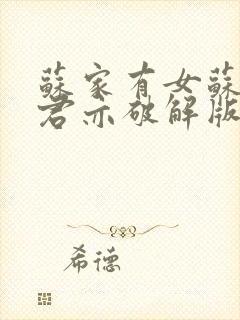 蘇家有女蘇
君亦破解版
希德